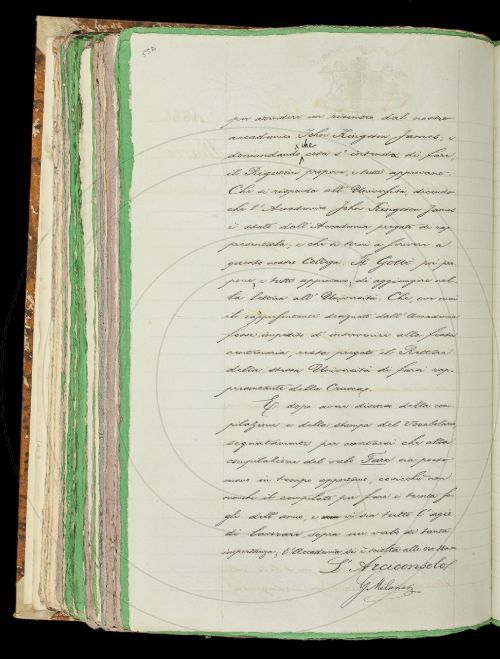 552
per attendere un riscontro dal nostro
accademico John Kingston James; e
domandando che cosa s'intenda di fare,
il Rigutini propone, e tutti approvano:
Che si risponda all'Università, dicendo
che l'Accademico John Kingston James
è stato dall'Accademia pregato di rap-
presentarla; e che si torni a scrivere a
questo nostro Collega. Il Gotti poi pro-
pone, e tutti approvano, di aggiungere nel-
la lettera all'Università: Che, ove mai
il rappresentante designato dall'Accademia
fosse impedito d'intervenire alla festa
centenaria, resta pregato il Rettore
della stessa Università di farsi rap-
presentante della Crusca.
E dopo avere discorso della com-
pilazione e della stampa del Vocabolario
segnatamente per accertarsi che alla
compilazione del verbo Fare sia posto
mano in tempo opportuno, cosicchè non
manchi il compilato per fare i trenta fo-
gli dell'anno, e vi sia tutto l'agio
di lavorare sopra un verbo di tanta
importanza; l'Accademia si è sciolta alle ore
L'Arciconsolo
G. Milanesi